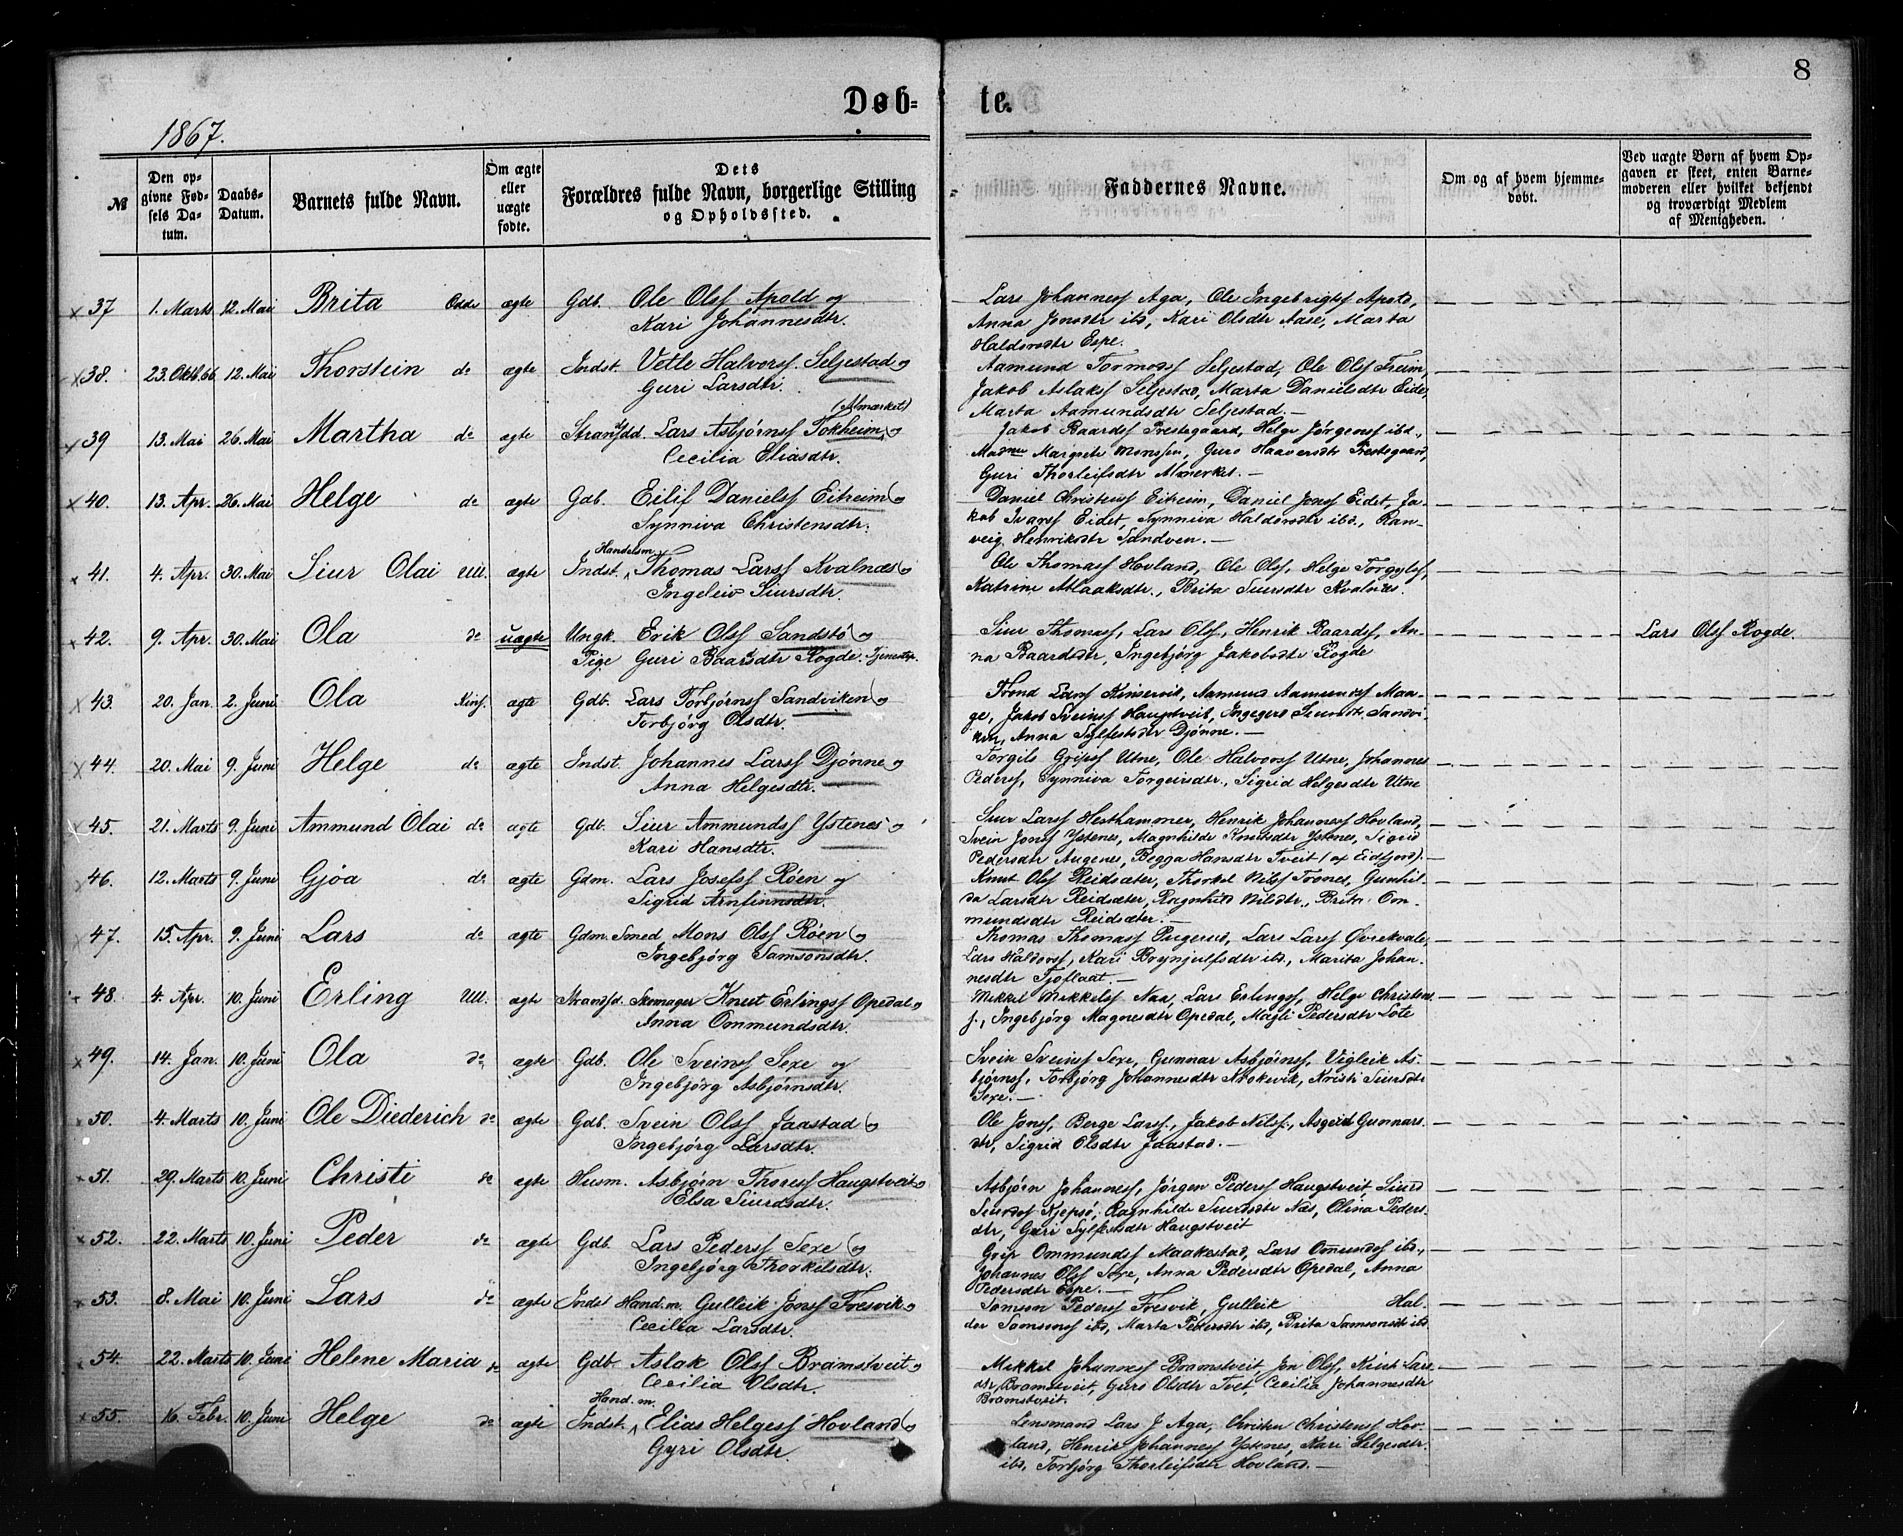 8
Døb-
te.
1867.
№
Den opgivne Fødsels Datum.
Daabs-Datum.
Barnets fulde Navn.
Om ægte eller uægte fødte.
Dets Forældres fulde Navn, borgerlige Stilling og Opholdssted.
Faddernes Navne.
Om og af hvem hjemmedøbt.
Ved uægte Børn af hvem Opgaven er skeet, enten Barnemoderen eller hvilket bekjendt og troværdigt Medlem af Menigheden.
37 1. Marts 12. Mai Brita Odde ægte Gdb. Ole Olsf Apold og
Kari Johannesdtr.
Lars Johannesf Aga, Ole Ingebrigtsf Apold,
Anna Jonsdtr ibd, Kari Olsdtr Aase, Marta
Haldorsdtr Espe.
38. 23. Oktb. 66 12. Mai Thorstein do ægte Indst. Vetle Halvorsf. Seljestad og
Guri Larsdtr.
Aamund Tormodsf Seljestad, Ole Olsf Freim,
Jakob Aslaksf Seljestad, Marta Danielsdtr Eide,
Marta Aamundsdtr Seljestad.—
39 13. Mai 26. Mai Martha do ægte Strandsidd. Lars Asbjørnsf Tokheim og
(Almærket)
Cecilia Eliasdtr.
Jakob Baardsf Prestegaard, Helge Jørgensf ibd.,
Madme Margrete Monssen, Guro Haaversdtr Prestegaard,
Guri Thorleifsdtr Almerket.—
40. 13. Apr. 26. Mai Helge do ægte Gdb. Eilif Danielsf Eitreim og
Synniva Christensdtr.
Daniel Christensf Eitreim, Daniel Jonsf Eidet, Ja-
kob Ivarsf Eidet, Synniva Haldorsdtr ibd., Ran-
veig Henriksdtr Sandven.—
41. 4. Apr. 30. Mai Siur Olai Ull. ægte Indst. Handelsm. Thomas Larsf Kvalnæs og
Ingeleiv Siursdtr.
Ole Thomasf Hovland, Ole Olsf, Helge Torgylsf,
Katrine Aslaksdtr., Brita Siursdtr Kvalnæs.
42. 9. Apr. 30. Mai Ola do uægte Ungk. Erik Olsf Sandstø og
Pige Guri Baarsdtr Rogde. Tjenestep.
Siur Thomasf, Lars Olsf, Henrik Baardsf, An-
na Baardsdtr, Ingebjørg Jakobsdtr Rogde
Lars Olsf Rogde.
43. 20. Jan. 2. Juni Ola Kinf. ægte Gdb. Lars Torbjørnsf Sandviken og
Torbjørg Olsdtr.
Trond Larsf Kinservik, Aamund Aamundsf Maa-
ge, Jakob Sveinsf Haugstveit, Ingegerd Siursdtr Sandvi-
ken, Anna Sylfestsdtr Djønne.—
44. 20. Mai 9. Juni Helge do ægte Indst. Johannes Larsf Djønne og
Anna Helgesdtr.
Torgils Gripsf Utne, Ole Halvorsf Utne, Johannes
Pedersf, Synniva Torgeirsdtr., Sigrid Helgesdtr Utne
45. 21. Marts 9. Juni Ammund Olai do ægte Gdb. Siur Ammundsf Ystenes og
Kari Hansdtr.
Siur Larsf Hesthammer, Henrik Johannesf Hovland,
Svein Jonsf Ystenes, Magnhilde Knutsdtr Ystenes, Sigrid
Pedersdtr Augenes, Begga Hansdtr Tveit (af Eidfjord).—
46. 12. Marts 9. Juni Gjøa do ægte Gdm. Lars Josefsf Røen og
Sigrid Arnfinnsdtr.
Knut Olsf Reidsæter, Thorkel Nilsf Trones, Gunhil-
da Larsdtr Reidsæter, Ragnhild Nilsdtr., Brita Om-
mundsdtr Reidsæter.—
47. 15. Apr. 9. Juni Lars do ægte Gdm. Smed Mons Olsf Røen og
Ingebjørg Samsonsdtr.
Thomas Thomasf Pugerud, Lars Larsf Øvrekvale,
Lars Haldorsf, Kari Brynjulfsdtr ibd, Marita Johan-
nesdtr Tjoflaat.—
48. 4. Apr. 10. Juni Erling Ull. ægte Strandsd. Skomager Knut Erlingsf Opedal og
Anna Ommundsdtr.
Mikkel Mikkelsf Naa, Lars Erlingsf, Helge Christens
f., Ingebjørg Magnesdtr Opedal, Magli Pedersdtr Lote
49. 14. Jan. 10. Juni Ola do ægte Gdb. Ole Sveinsf Sexe og
Ingebjørg Asbjørnsdtr.
Svein Sveinsf Sexe, Gunnar Asbjørnsf, Vigleik As-
bjørnsf, Torbjørg Johannesdtr Krokevik, Kristi Siursdtr
Sexe.—
50. 4. Marts 10. Juni Ole Diederich do ægte Gdb. Svein Olsf Jaastad og
Ingebjørg Larsdtr.
Ole Jonsf, Berge Larsf, Jakob Nilsf, Asgerd Gunnars
dtr, Sigrid Olsdtr Jaastad.—
51. 29. Marts 10. Juni Christi do ægte Husm. Asbjørn Thoresf Haugstveit og
Elsa Siurdsdtr.
Asbjørn Johannesf, Jørgen Pedersf Haugstveit, Siurd
Siurdsf Kjepsø, Ragnhilde Siurdsdtr Næs, Olina Peders-
dtr, Guri Sylfestsdtr Haugstveit
52. 22. Marts 10. Juni Peder do ægte Gdb. Lars Pedersf Sexe og
Ingebjørg Thorkelsdtr.
Grip Ommundsf Maakestad, Lars Ommundsf ibd.,
Johannes Olsf Sexe, Anna Pedersdtr Opedal, Anna
Pedersdtr Espe.—
53. 8. Mai 10. Juni Lars do ægte Indst Hand.m. Gulleik Jonsf Fresvik og
Cecilia Larsdtr.
Samson Pedersf Fresvik, Gulleik Hal-
dor Samsonsf ibd, Marta Pedersdtr ibd, Brita Samsonsdtr ibd
54. 22. Marts 10. Juni Helene Maria do ægte Gdb. Aslak Olsf Bramstveit og
Cecilia Olsdtr.
Mikkel Johannesf Bramstveit, Jon Olsf, Knut Lars
dtr, Bramstveit, Guro Olsdtr Tvet, Cecilia Johannesdtr
Bramstveit.
55. 16. Febr. 10. Juni Helge do ægte Indst. Hand.m. Elias Helgesf Hovland og
Gyri Olsdtr.
Lensmand Lars J. Aga, Christen Christensf Hov-
land, Henrik Johannesf Ystenes, Kari Helgesdtr
ibd, Torbjørg Thorleifsdtr Hovland.—